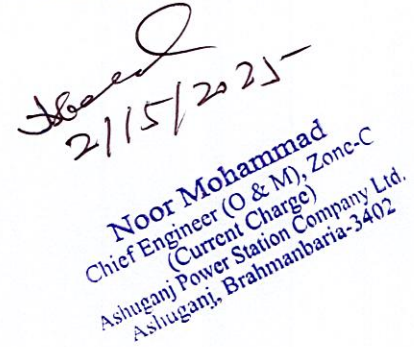 2/15/2025
Noor Mohammad
Chief Engineer (O & M), Zone-C
(Current Charge)
Ashuganj Power Station Company Ltd.
Ashuganj, Brahmanbaria-3402